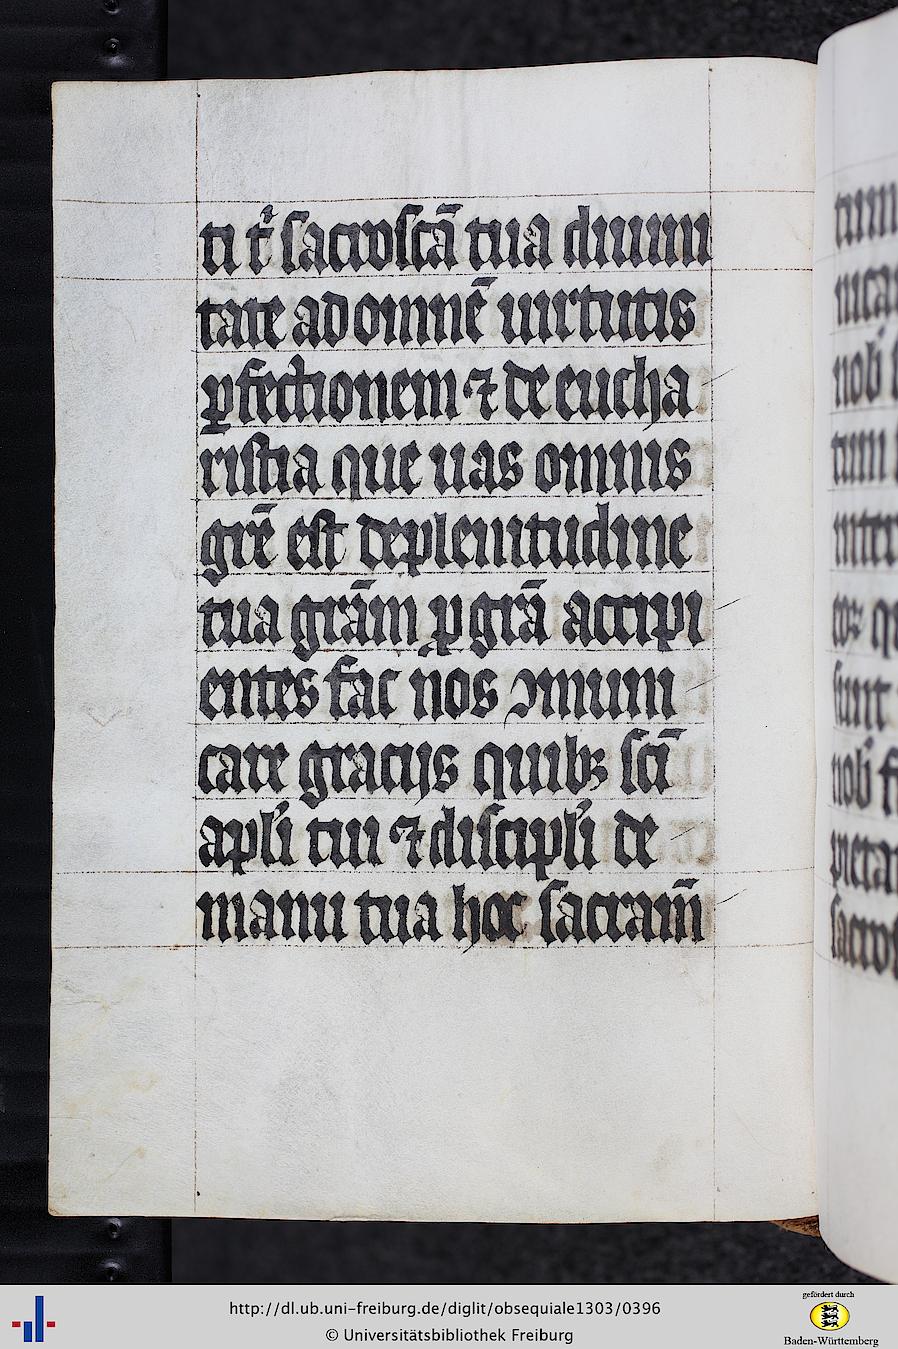 ti t̾ sacrosc̄ā tua diuini
tate ad omnē uirtutis
ꝑfectionem ⁊ de eucha
ristia que uas omnis
grē est de plenitudine
tua grām ꝑ grā accipi
entes fac nos ꝯmuni
care gracijs quibꝫ sc̄i
apl̄i tui ⁊ discipl̄i de
manu tua hoc sacram̄
http://dl.ub.uni-freiburg.de/diglit/obsequiale1303/0396
© Universitätsbibliothek Freiburg
gefördert durch
Baden-Württemberg